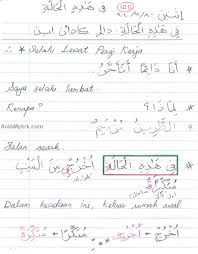 فِي هَذِهِ الْحَالَةِ (125)
في هَذِهِ الْحَالَةِ : دالم كادأن اين
∴ * Selalu Lewat Pagi Kerja
* أَنَا دَائِمًا أَتَأَخَّرُ
Saya selalu lambat
Kenapa? لِمَاذَا؟
* الطَّرِيقُ مُزْدَحِمٌ
Jalan sesak
* فِي هَذِهِ الْحَالَةِ أُخْرُجِي مِنَ الْبَيْتِ
مُبَكِّرَةً
Dalam keadaan ini, keluar rumah awal
* أُخْرُجْ ← أُخْرُجِي مُبَكِّرًا ← مُبَكِّرَةً
ArabMykrk.com